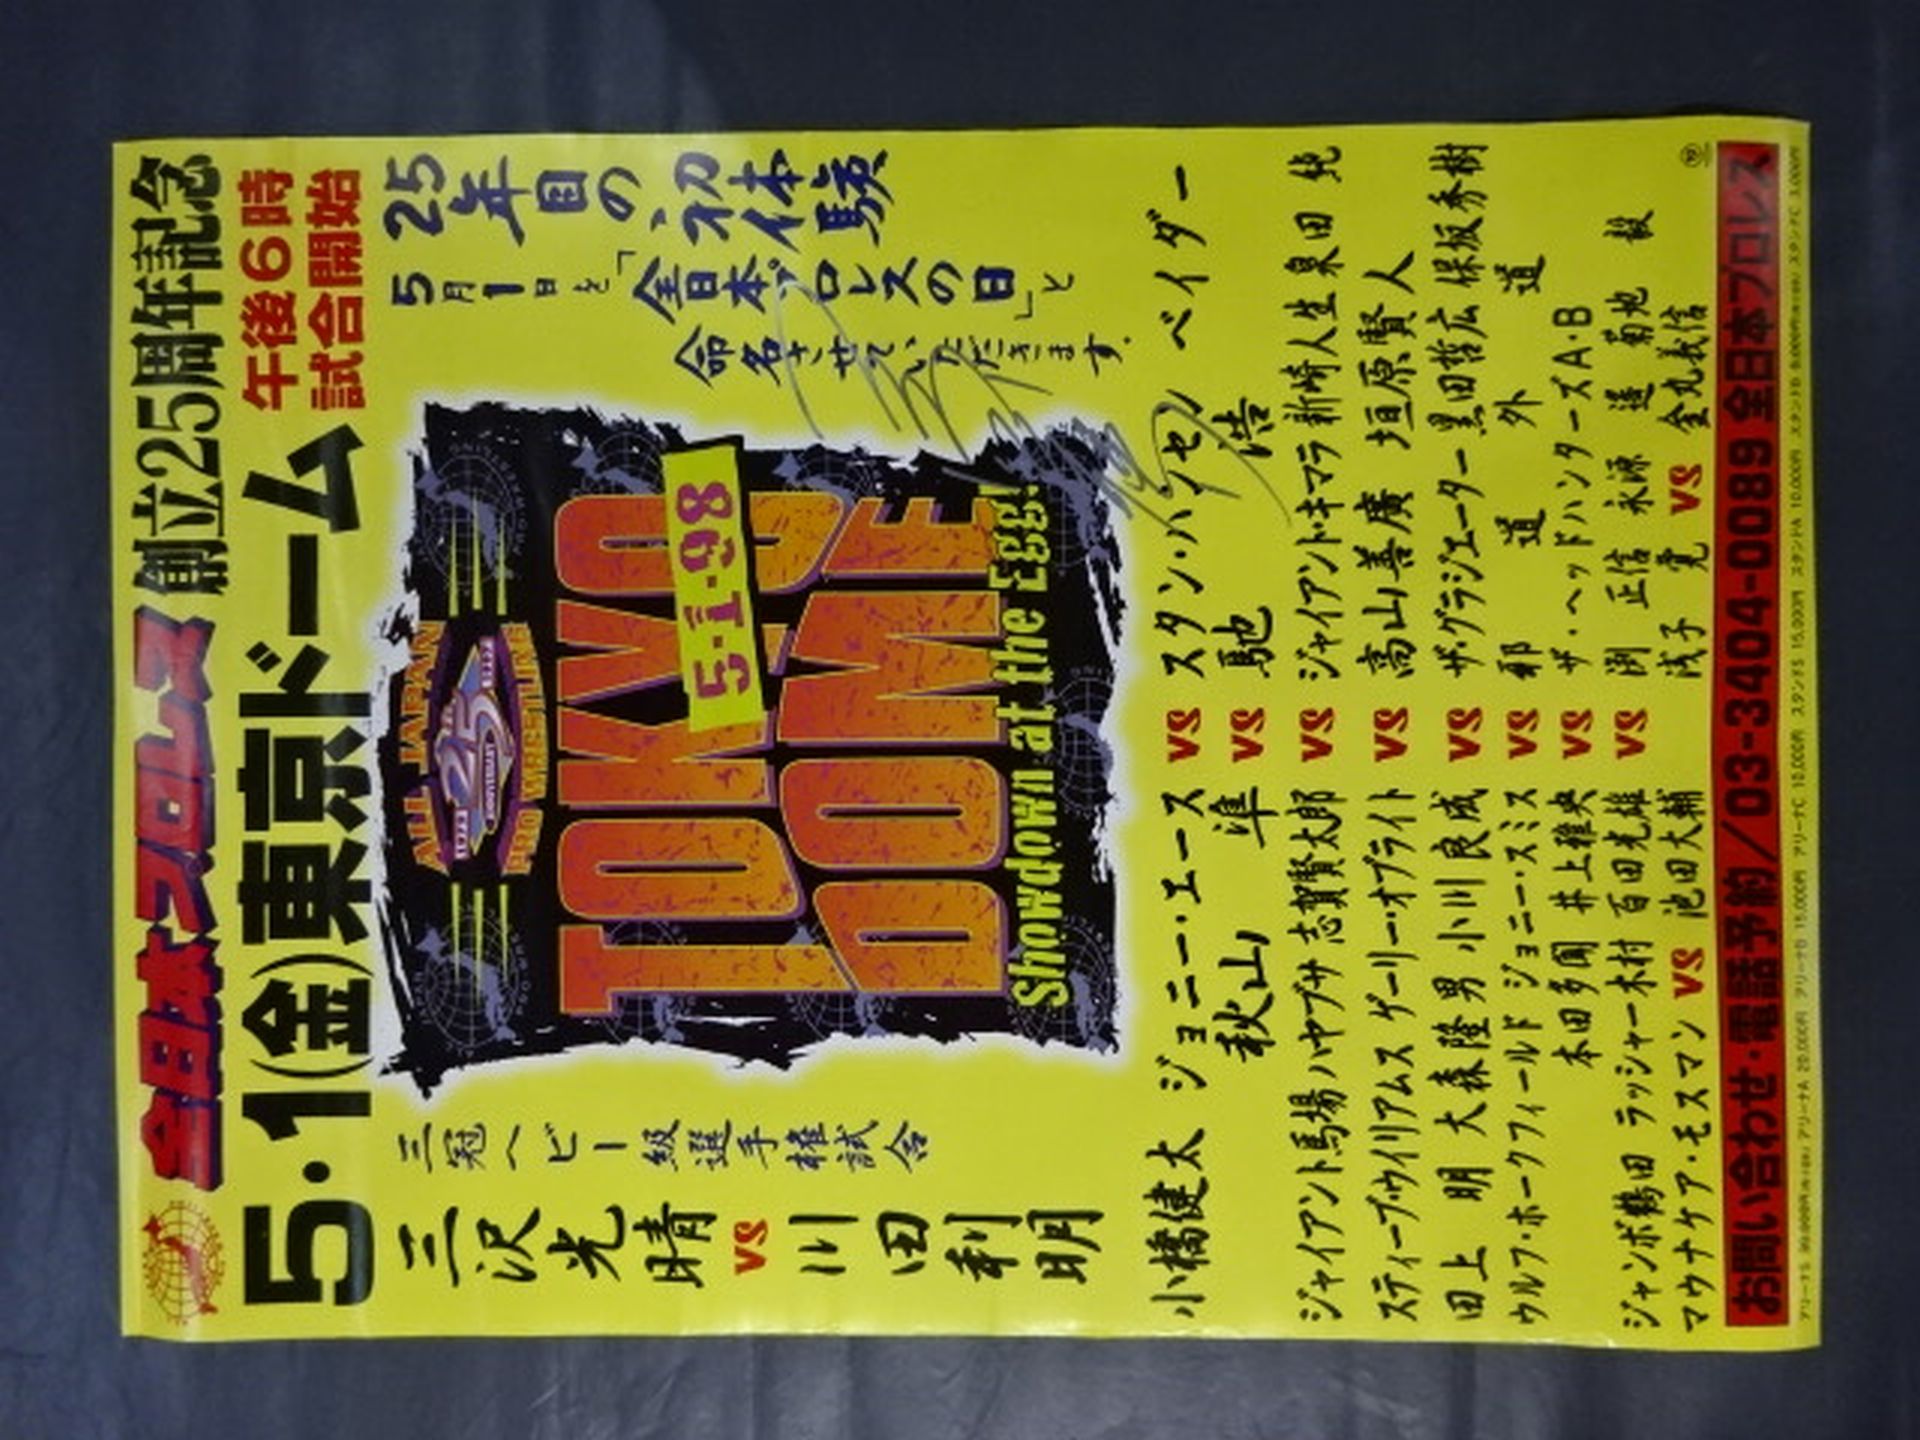 全日本プロレス 創立25周年記念
5・1(金)東京ドーム 午後6時 試合開始
25年目の、初体験
5月1日を「全日本プロレスの日」と
命名させていただきます。
三冠ヘビー級選手権試合
三沢光晴 vs 川田利明
ALL JAPAN
1972 25th 1997
ANNIVERSARY
PRO WRESTLING
TOKYO
5・1・98
DOME
Showdown at the Egg!!
小橋健太 ジョニー・エース vs スタン・ハンセン ベイダー
秋山 準 vs 馳 浩
ジャイアント馬場 ハヤブサ 志賀賢太郎 vs ジャイアント・キマラ 新崎人生 泉田 純
スティーブ・ウイリアムス ゲーリー・オブライト vs 高山善廣 垣原賢人
田上 明 大森隆男 小川良成 vs ザ・グラジエーター 黒田哲広 保坂秀樹
ウルフ・ホークフィールド ジョニー・スミス vs 邪道 外道
本田多聞 井上雅央 vs ザ・ヘッドハンターズA・B
ジャンボ鶴田 ラッシャー木村 百田光雄 vs 渕 正信 永源 遥 菊地 毅
マウナケア・モスマン vs 池田大輔
浅子 覚 vs 金丸義信
お問い合わせ・電話予約/03-3404-0089 全日本プロレス